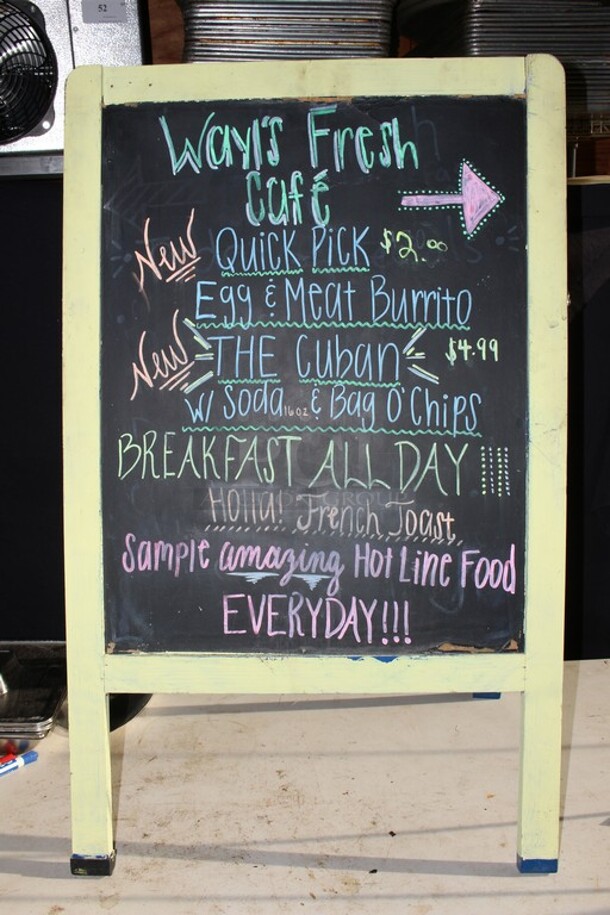 52
Wayl's Fresh
Café
New Quick Pick $2.00
Egg & Meat Burrito
New THE Cuban $4.99
w/ Soda 16oz & Bag O' Chips
BREAKFAST ALL DAY
Holla! French Toast
Sample amazing Hot Line Food
EVERYDAY!!!